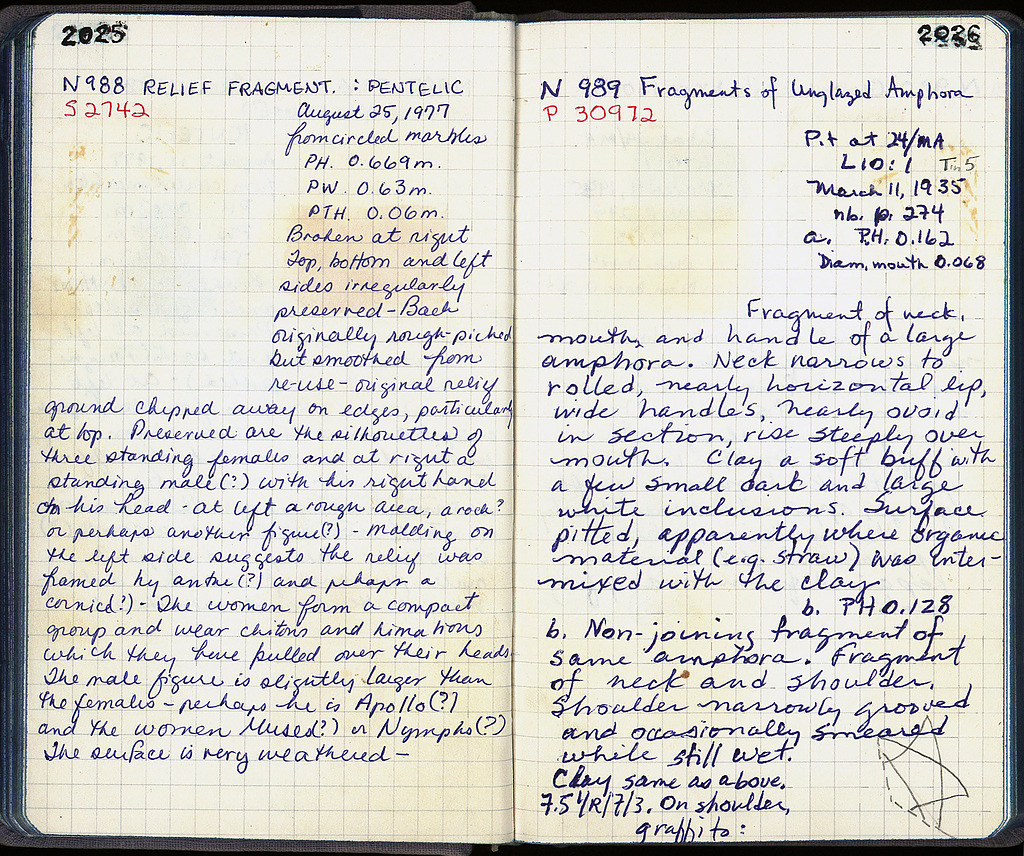 2025
N 988 RELIEF FRAGMENT. : PENTELIC
S 2742
August 25, 1977
from circled marbles
PH. 0.669 m.
PW. 0.63 m.
PTH. 0.06 m.
Broken at right
Top, bottom and left
sides irregularly
preserved - Back
originally rough-picked
but smoothed from
re-use - original relief
ground chipped away on edges, particularly
at top. Preserved are the silhouettes of
three standing females and at right a
standing male (?) with his right hand
on his head - at left a rough area, a rock?
or perhaps another figure (?) - Molding on
the left side suggests the relief was
framed by antae (?) and perhaps a
cornice (?) - The women form a compact
group and wear chitons and himations
which they have pulled over their heads.
The male figure is slightly larger than
the females - perhaps he is Apollo (?)
and the women Muses (?) or Nymphs (?)
The surface is very weathered -
2026
N 989 Fragments of Unglazed Amphora
P 30972
Pit at 24/MA
L 10 : 1 Tin 5
March 11, 1935
nb. p. 274
a. P.H. 0.162
Diam. mouth 0.068
Fragment of neck,
mouth, and handle of a large
amphora. Neck narrows to
rolled, nearly horizontal lip,
wide handles, nearly ovoid
in section, rise steeply over
mouth. Clay a soft buff with
a few small dark and large
white inclusions. Surface
pitted, apparently where organic
material (e.g. straw) was inter-
mixed with the clay
b. PH 0.128
b. Non-joining fragment of
same amphora. Fragment
of neck and shoulder.
Shoulder narrowly grooved
and occasionally smeared
while still wet.
Clay same as above.
7.5 YR/7/3. On shoulder,
graffito: